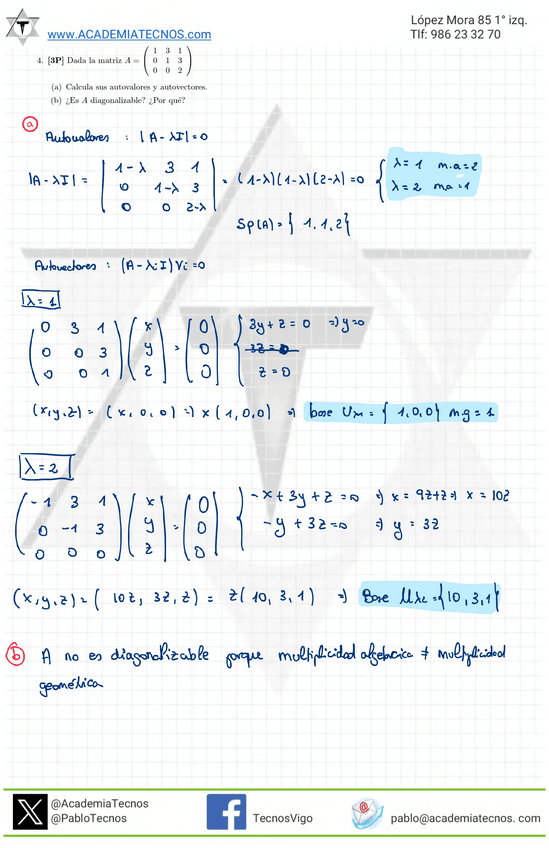 López Mora 85 1° izq.
www.ACADEMIATECNOS.com
Tlf: 986 23 32 70
4. [3P] Dada la matriz A = ( 1 3 1
0 1 3
0 0 2 )
(a) Calcula sus autovalores y autovectores.
(b) ¿Es A diagonalizable? ¿Por qué?
a
Autovalores : |A - λI| = 0
|A - λI| = | 1-λ 3 1
0 1-λ 3
0 0 2-λ | = (1-λ)(1-λ)(2-λ) = 0 { λ = 1 m.a = 2
λ = 2 ma = 1
Sp(A) = { 1, 1, 2 }
Autovectores : (A - λiI) Vi = 0
λ = 1
( 0 3 1 ) ( x ) = ( 0 ) { 3y + z = 0 => y = 0
( 0 0 3 ) ( y ) ( 0 ) 3z = 0
( 0 0 1 ) ( z ) ( 0 ) z = 0
(x, y, z) = (x, 0, 0) => x (1, 0, 0) => base Uλ1 = { 1, 0, 0 } mg = 1
λ = 2
( -1 3 1 ) ( x ) = ( 0 ) { -x + 3y + z = 0 => x = 9z + z => x = 10z
( 0 -1 3 ) ( y ) ( 0 ) -y + 3z = 0 => y = 3z
( 0 0 0 ) ( z ) ( 0 )
(x, y, z) = ( 10z, 3z, z ) = z( 10, 3, 1 ) => Base Uλ2 = {10, 3, 1}
b A no es diagonalizable porque multiplicidad algebraica ≠ multiplicidad
geométrica
@AcademiaTecnos
@PabloTecnos
TecnosVigo
pablo@academiatecnos.com